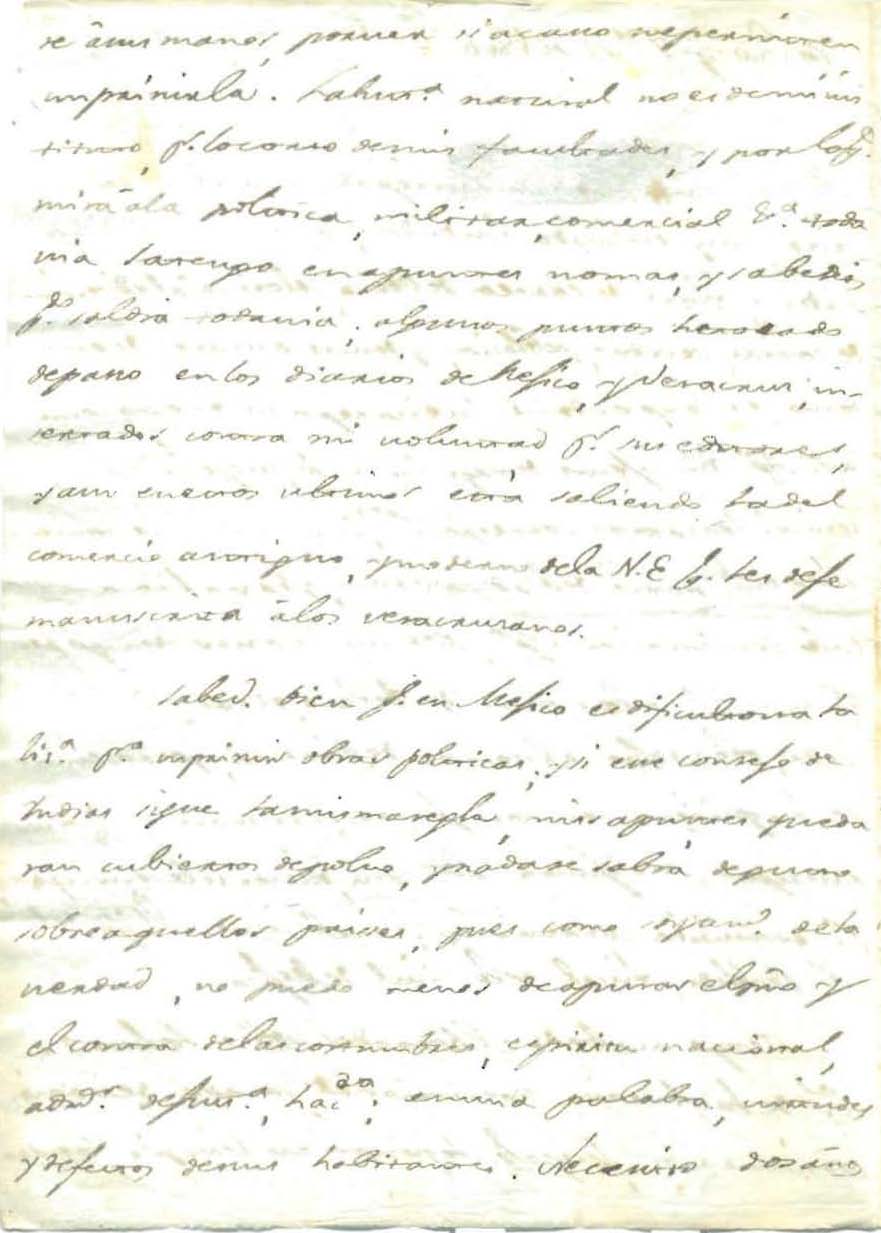 se â sus manos, por ver si acaso se permite en
imprimirla. La hist.ª natural no es de mi ins
tituto, p.r lo corto de mis facultades, y por lo q.e
mira â la politica, militar, comercial &.ª toda
via la tengo en apuntes nomas, y sabe Dios
q.do saldrá todavia; algunos puntos he tocado
de paso en los diarios de Mesico, y Veracruz, in-
sertados contra mi voluntad p.r sus editores,
y aun en estos ultimos está saliendo la del
comercio antiguo, y moderno de la N.E q.e les dejé
manuscrita â los veracruzanos.
Sabe V. bien q.e en Mesico es dificultosa la
lis.ª p.ª imprimir obras politicas, y si ese consejo de
Indias sigue la misma regla, mis apuntes queda
ran cubiertos de polvo, y nada se sabrá de puro
sobre aquellos paises, pues como soy am.e de la
verdad, no puedo menos de apurar el pro y
el contra de las costumbres, espiritu nacional,
adm.on de just.ª, hac.da; en una palabra, virtudes
y defectos de sus habitantes. Necesito dos años